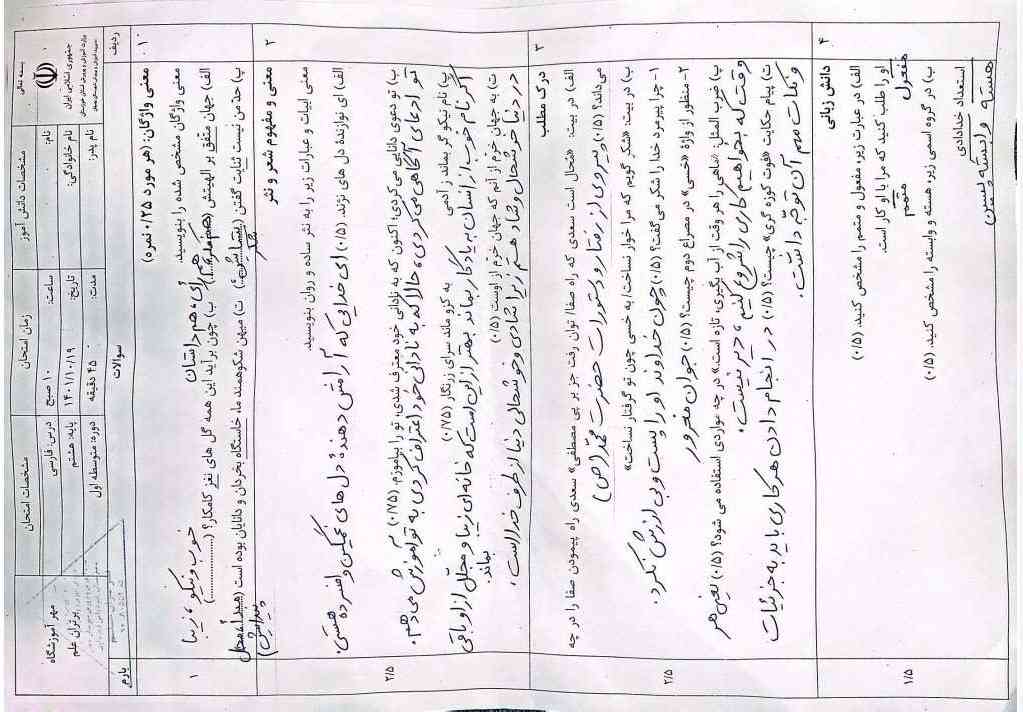 بسمه تعالی
جمهوری اسلامی ایران
مشخصات دانش آموز
زمان امتحان
مشخصات امتحان
مهر آموزشگاه
نام:
ساعت:
۱۰ صبح
درس: فارسی
نام خانوادگی:
تاریخ:
۱۴۰۱/۱۰/۱۹
پایه: هشتم
نام پدر:
مدت:
۴۵ دقیقه
دوره: متوسطه اول
برتران علم
ردیف
سوالات
بارم
۱
معنی واژگان: (هر مورد ۰/۲۵ نمره)
معنی واژگان مشخص شده را بنویسید.
خوب و نیکو، زیبا
الف) جهان متفق بر الهیتش (هم رأی، هم داستان) ب) چون برآید این همه گل های نغز کامکار؟ (..............)
پ) حد من نیست ثنایت گفتن (ستایش، شکر) ت) میهن شکوهمند ما، خاستگاه بخردان و دانایان بوده است (مبدأ، محل پیدایش)
۱
۲
معنی و مفهوم شعر و نثر
معنی ابیات و عبارات زیر را به نثر ساده و روان بنویسید.
الف) ای نوازنده دل های نژند. (۰/۵) ای خدایی که آرامش دهنده دل های غمگین و افسرده هستی.
ب) تو دعوی دانایی می کردی؛ اکنون که به نادانی خود معترف شدی، تو را بیاموزم. (۰/۷۵)
تو ادعای آگاهی می کردی، حالا که به نادانی خود اعتراف کردی به تو آموزش می دهم.
پ) نام نیکو گر بماند ز آدمی به کزو ماند سرای زرنگار (۰/۷۵)
اگر نام خوب از انسان به یادگار بماند بهتر از این است که خانه ای زیبا و مجلل از او باقی بماند.
ت) به جهان خرم از آنم که جهان خرم از اوست (۰/۵)
در دنیا خوشحال و شاد هستم زیرا شادی و خوشحالی دنیا از طرف خدا است.
۲/۵
۳
درک مطلب
الف) در بیت: «محال است سعدی که راه صفا/ توان رفت جز بر پی مصطفی» سعدی راه پیمودن صفا را در چه
می داند؟ (۰/۵) پیروی از رفتار و دستورات حضرت محمد (ص)
ب) در بیت: «شکر گویم که مرا خوار نساخت/ به خسی چون تو گرفتار نساخت»
۱- چرا پیرمرد خدا را شکر می گفت؟ (۰/۵) چون خداوند او را پست و بی ارزش نکرد.
۲- منظور از واژه «خسی» در مصراع دوم چیست؟ (۰/۵) جوان مغرور
پ) ضرب المثل: «ماهی را هر وقت از آب بگیری، تازه است.» در چه مواردی استفاده می شود؟ (۰/۵) یعنی هر
وقت که بخواهیم کاری را شروع کنیم، دیر نیست.
ت) پیام حکایت «فوت کوزه گری» چیست؟ (۰/۵) در انجام دادن هر کاری باید به جزئیات
و نکات مهم آن توجه داشت.
۲/۵
۴
دانش زبانی
الف) در عبارت زیر، مفعول و متمم را مشخص کنید. (۰/۵)
او را طلب کنید که مرا با او کار است.
مفعول
متمم
ب) در گروه اسمی زیر، هسته و وابسته را مشخص کنید. (۰/۵)
استعداد خدادادی
هسته وابسته پسین
۱/۵